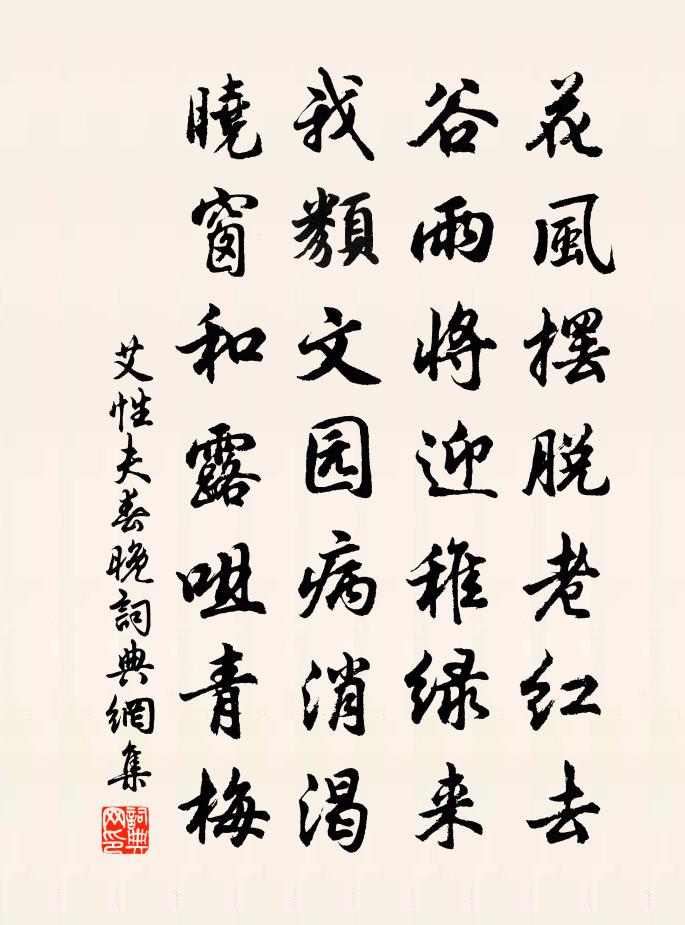 花風擺脱老红去
谷雨將迎稚绿来
我類文园病消渴
曉窗和露咀青梅
艾性夫春晚詞典網集
詞典網印